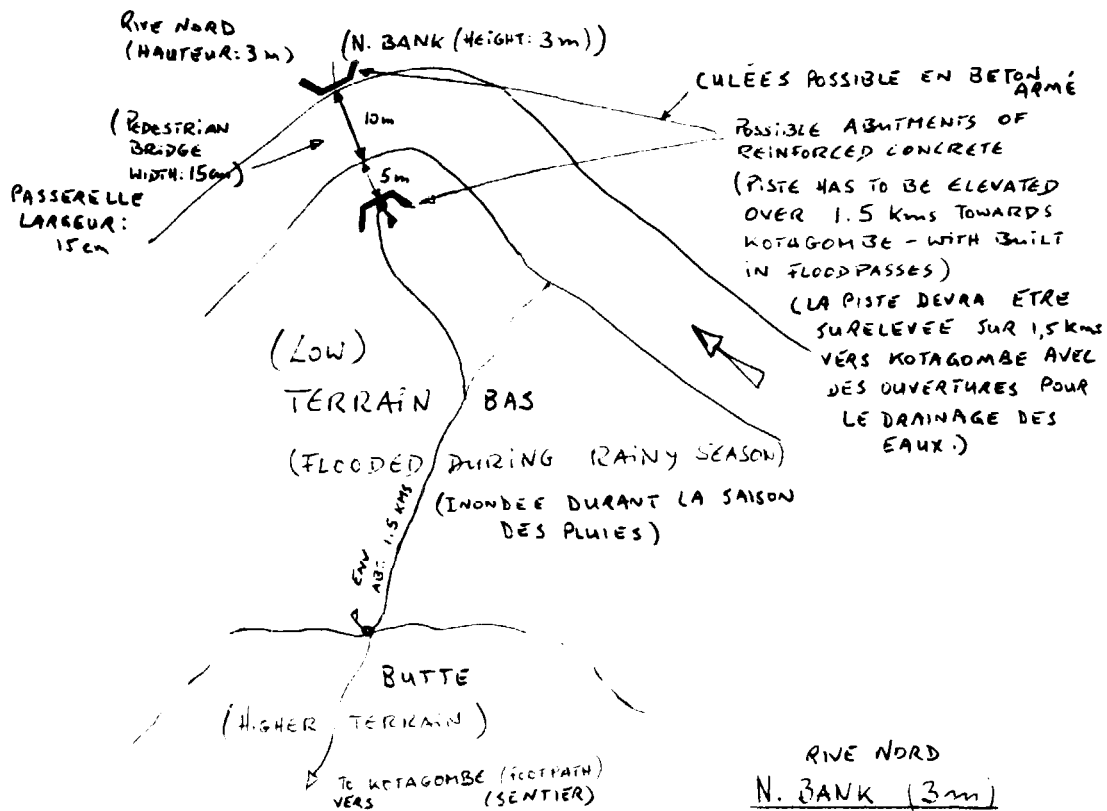 RIVE NORD
(HAUTEUR: 3m)
(N. BANK (HEIGHT: 3m))
CULÉES POSSIBLE EN BETON
ARMÉ
10m
(PEDESTRIAN
BRIDGE
WIDTH: 15cm)
PASSERELLE
LARGEUR:
15cm
5m
POSSIBLE ABUTMENTS OF
REINFORCED CONCRETE
(PISTE HAS TO BE ELEVATED
OVER 1.5 KMS TOWARDS
KOTAGOMBE - WITH BUILT
IN FLOODPASSES)
(LA PISTE DEVRA ETRE
SURELEVÉE SUR 1,5 KMS
VERS KOTAGOMBE AVEC
DES OUVERTURES POUR
LE DRAINAGE DES
EAUX.)
(LOW)
TERRAIN BAS
(FLOODED DURING RAINY SEASON)
(INONDEE DURANT LA SAISON
DES PLUIES)
ENV
ABT. 1.5 KMS
BUTTE
(HIGHER TERRAIN)
TO KOTAGOMBE (FOOTPATH)
VERS (SENTIER)
RIVE NORD
N. BANK (3m)